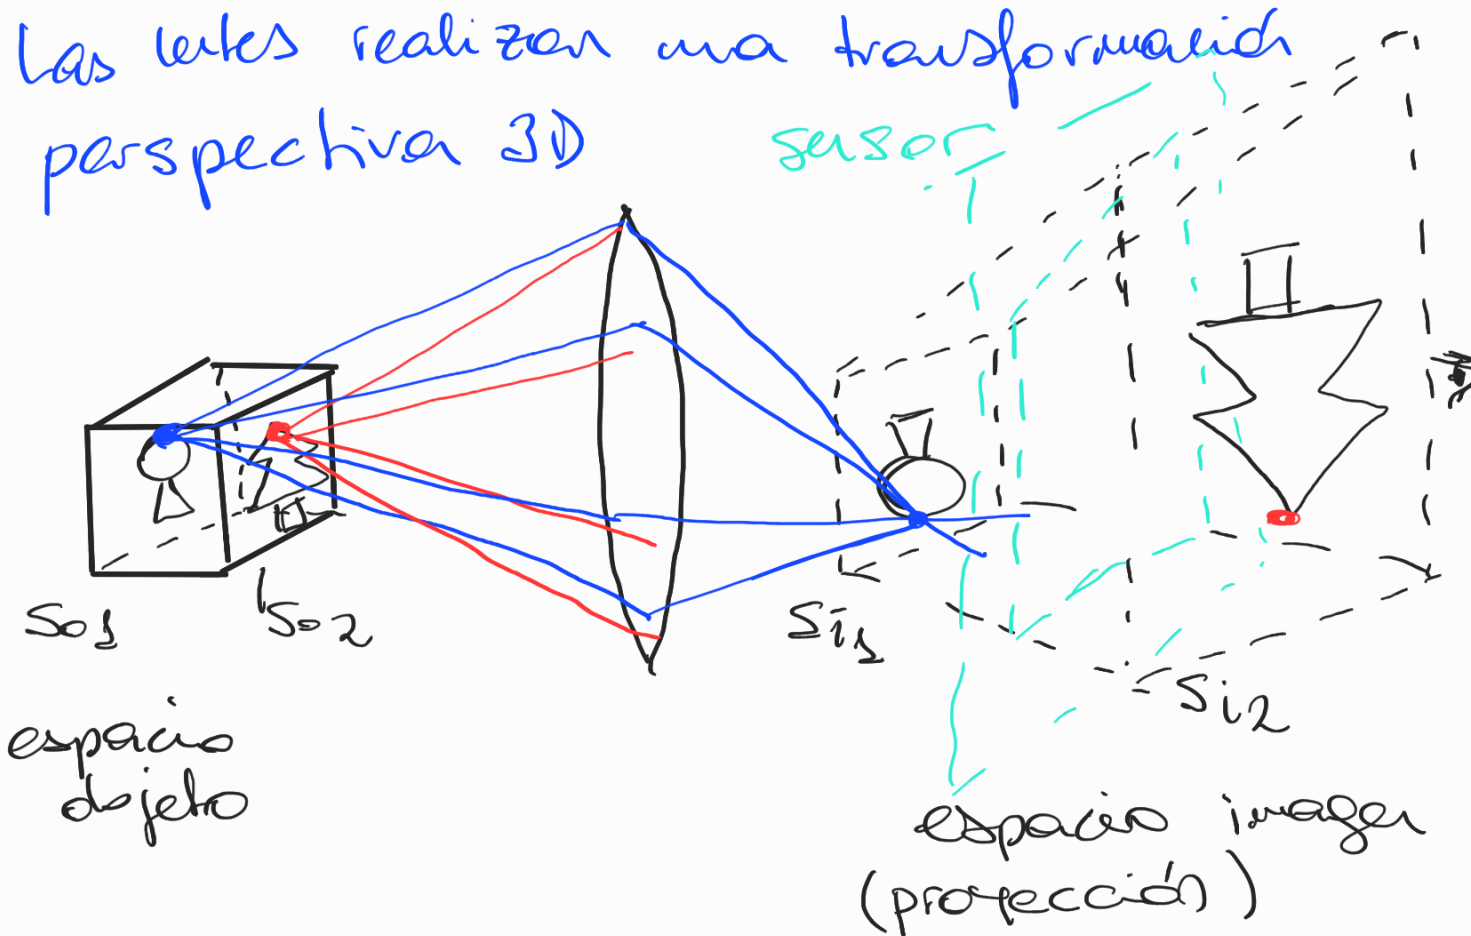 Las lentes realizan una transformación
perspectiva 3D
sensor
So1
So2
Si1
Si2
espacio
objeto
espacio imagen
(proyección)